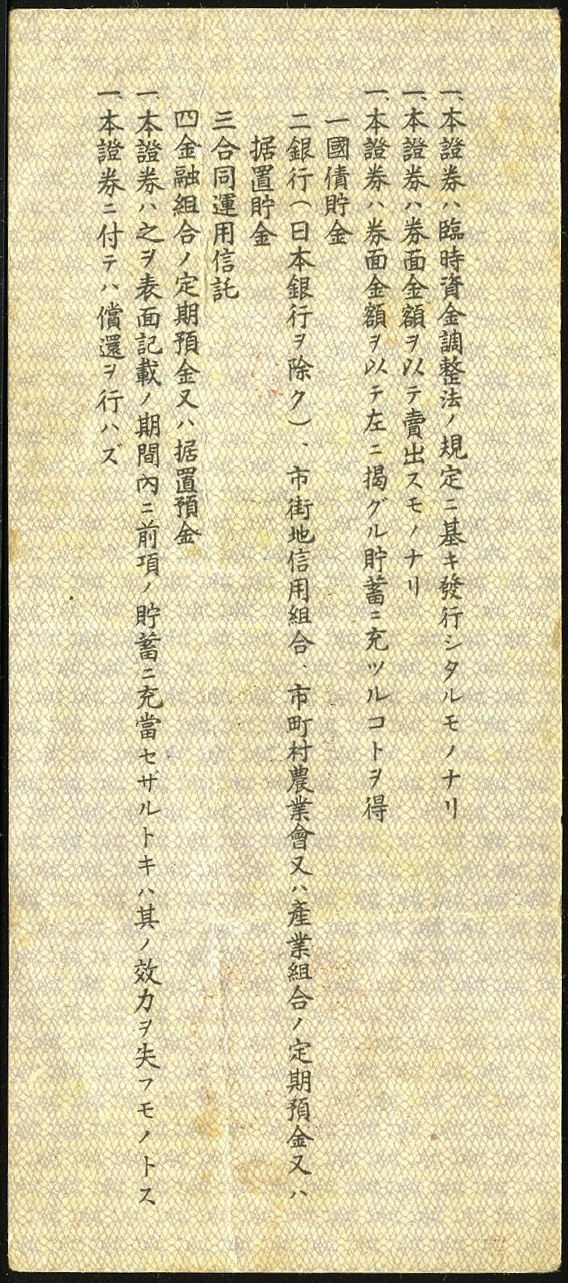 一、本證券ハ臨時資金調整法ノ規定ニ基キ發行シタルモノナリ
一、本證券ハ券面金額ヲ以テ賣出スモノナリ
一、本證券ハ券面金額ヲ以テ左ニ揭グル貯蓄ニ充ツルコトヲ得
一國債貯金
二銀行(日本銀行ヲ除ク)、市街地信用組合、市町村農業會又ハ產業組合ノ定期預金又ハ
据置貯金
三合同運用信託
四金融組合ノ定期預金又ハ据置預金
一、本證券ハ之ヲ表面記載ノ期間內ニ前項ノ貯蓄ニ充當セザルトキハ其ノ效力ヲ失フモノトス
一、本證券ニ付テハ償還ヲ行ハズ